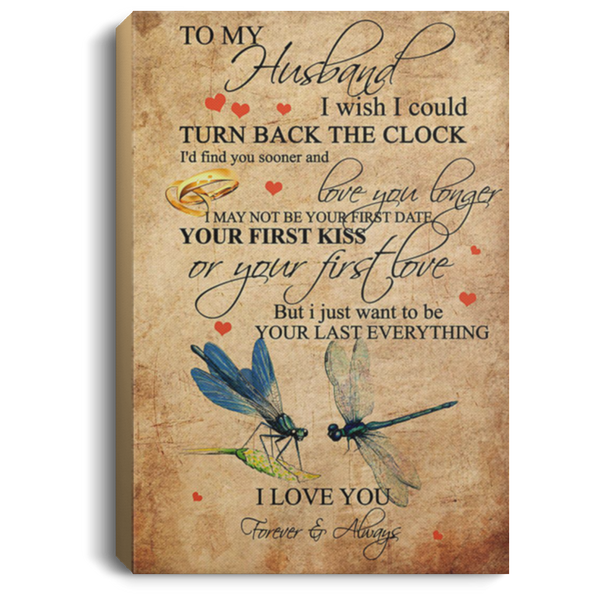 TO MY
Husband
I wish I could
TURN BACK THE CLOCK
I'd find you sooner and
love you longer
I MAY NOT BE YOUR FIRST DATE
YOUR FIRST KISS
or your first love
But i just want to be
YOUR LAST EVERYTHING
I LOVE YOU
Forever & Always